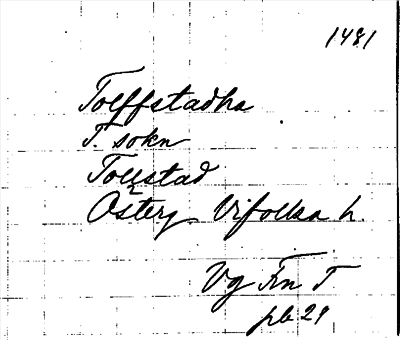 1481
Tolffstadha
T. sokn
Tollstad
Österg. Vifolka h.
Vg Frn T
pb 21